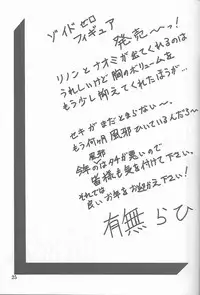 ゾイドゼロ
フィギュア
発売〜っ！
リノンとナオミが出てくれるのは
うれしいけど胸のボリュームを
もう少し抑えてくれたほうが…
セキがまだとまらない〜。
もう何ヶ月風邪ひいているんだろ〜
風邪
今年のはタチが悪いので
皆様も気を付けて下さい。
それでは
良いお年をお迎え下さい！
有無らひ
25